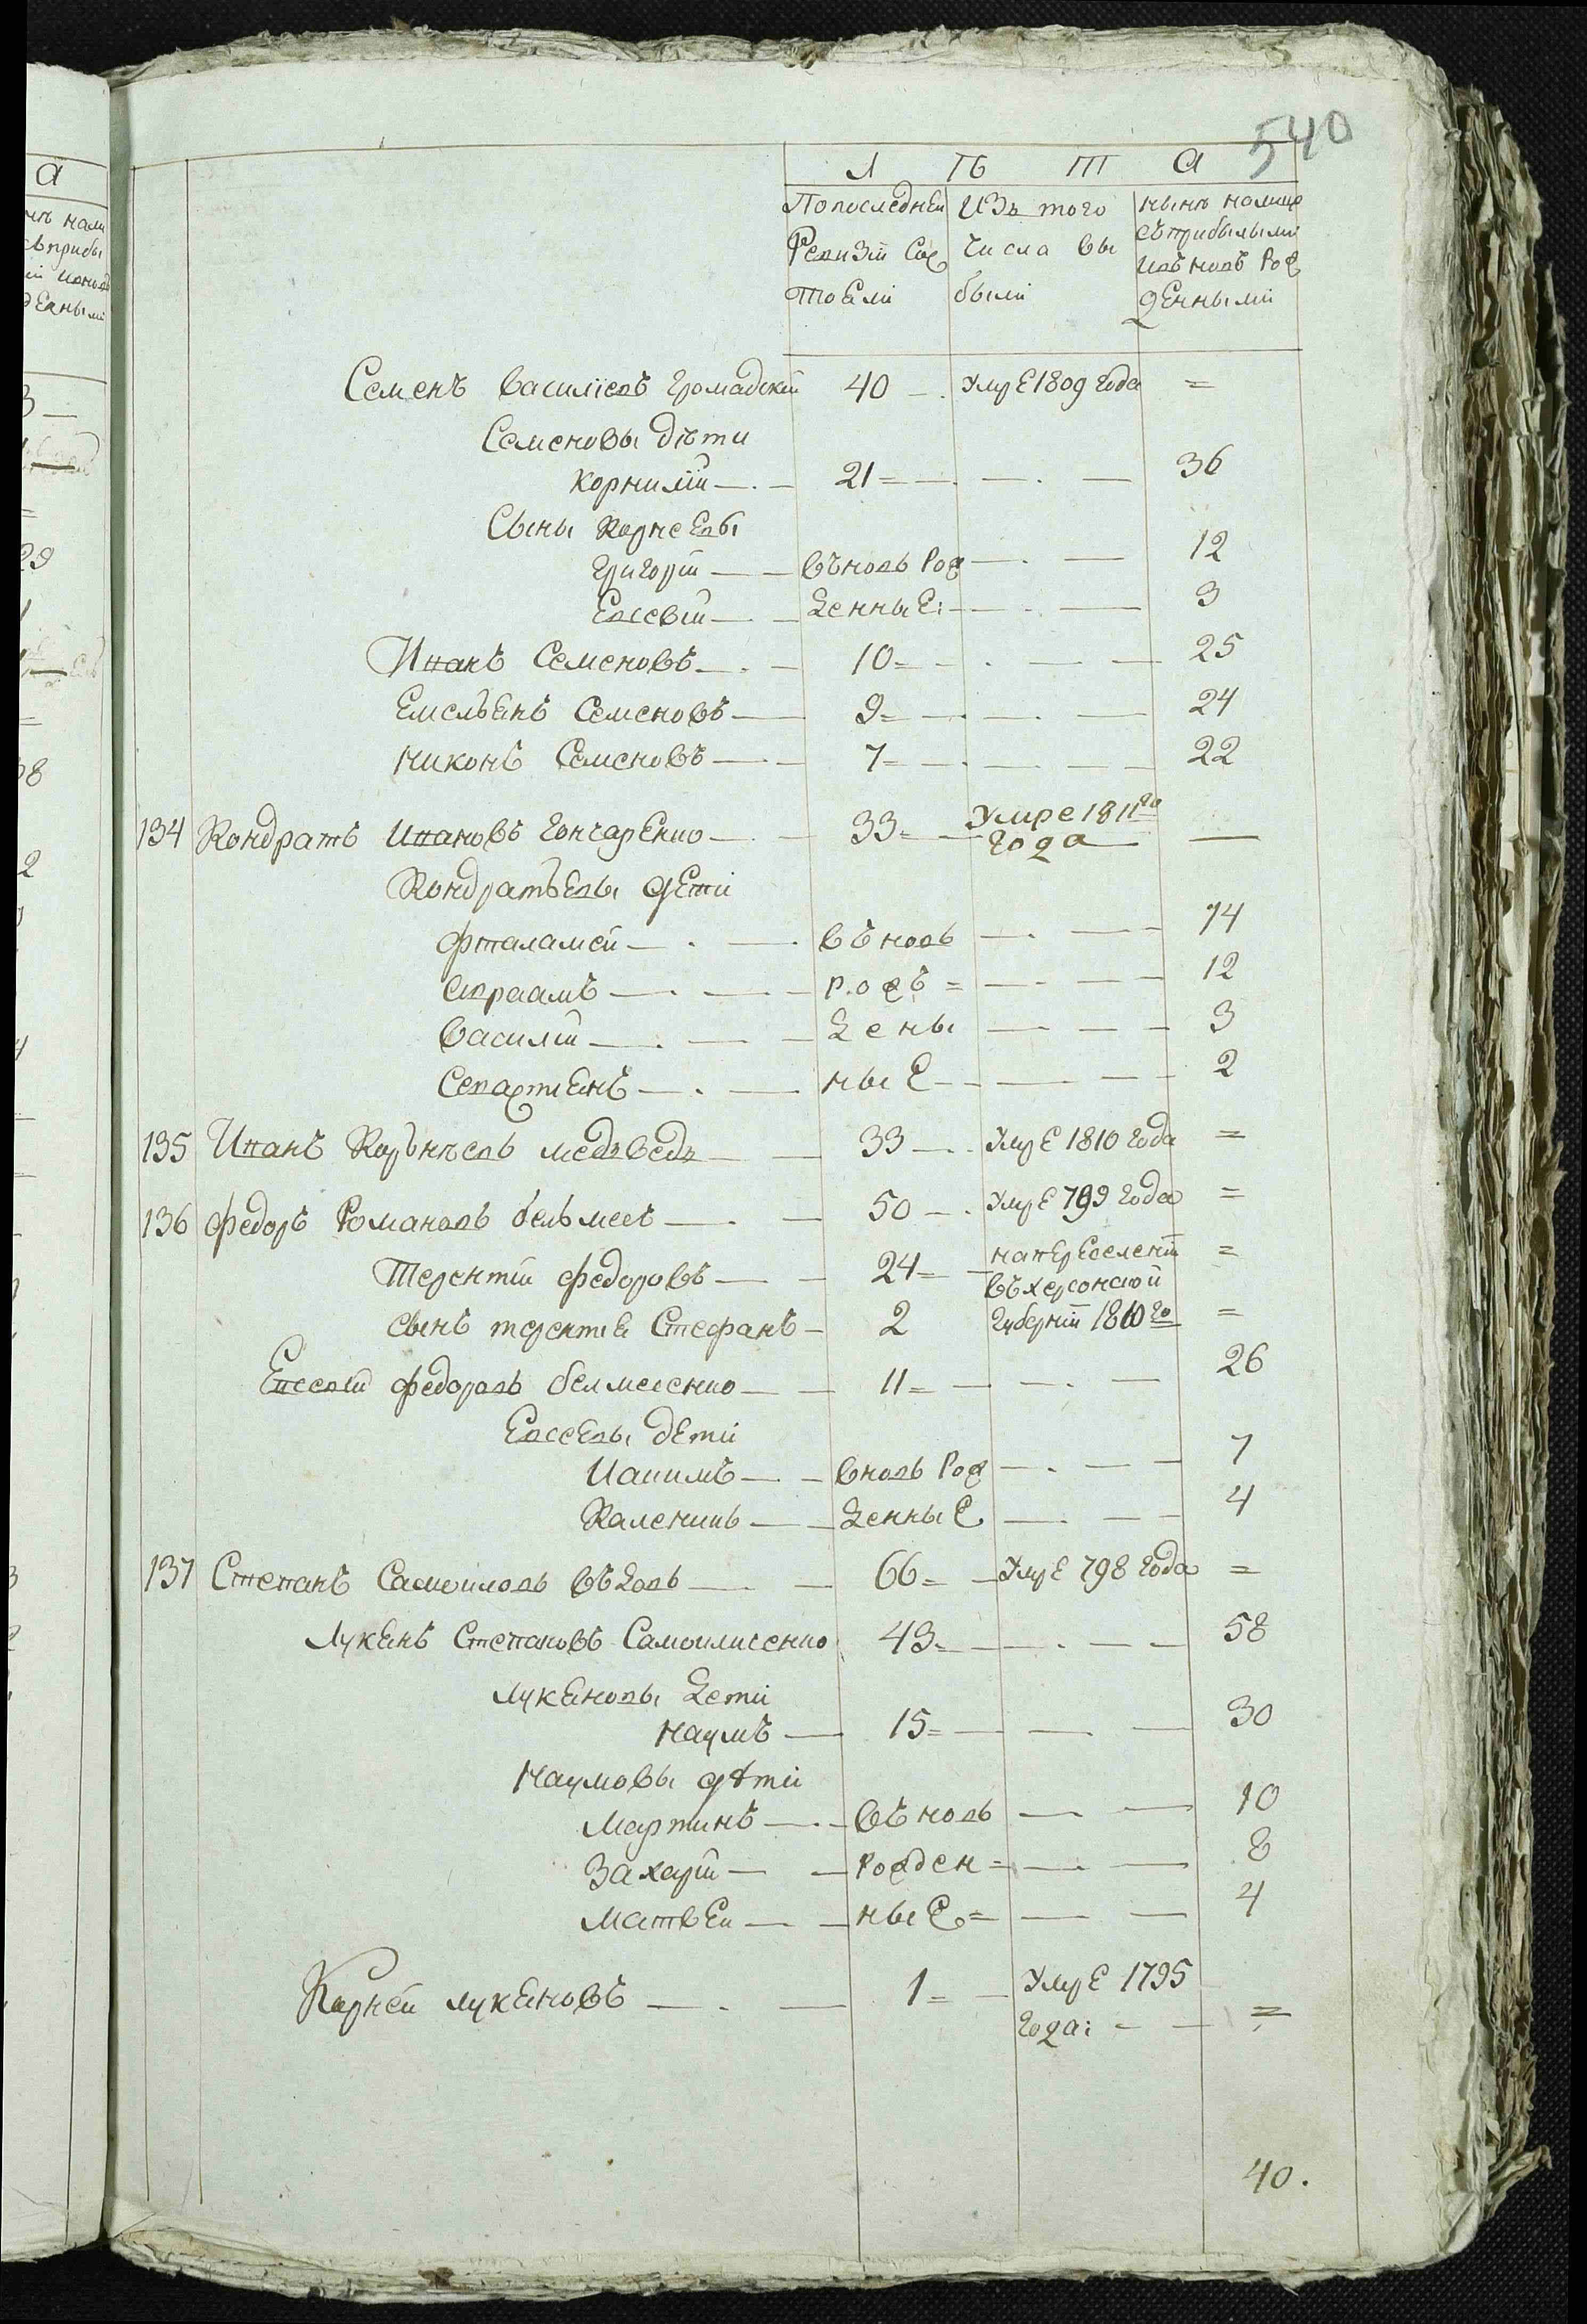 540
Л Ѣ Т А
По последней Изъ того нынѣ налице
Ревизіи Сос числа вы съ прибылыми
тоели были и въновь Рож
денными
Семенъ Василіевъ Громадскій 40 — Умре 1809 года =
Семеновы дѣти
Корнилій — 21 = — — 36
Сыны Корнеевы
Григорій — въновь Рож — 12
Евсевій — денные: — 3
Иванъ Семеновъ — 10 = — 25
Емельянъ Семеновъ — 9 = — 24
Никонъ Семеновъ — 7 = — 22
134 Кондратъ Ивановъ Гончаренко — 33 = — Умре 1811го
года —
Кондратьевы дети
Фталамей — въновь — 14
Авраамъ — рож = — 12
Василій — дены — 3
Севастіянъ — ные — 2
135 Иванъ Корънѣевъ медъведъ — 33 — Умре 1810 года =
136 Федоръ Романовъ бельмесъ — 50 — Умре 799 года =
Терентій Федоровъ — 24 = — на переселеніи =
въ херсонской
сынъ терентія Стефанъ — 2 губерніи 1810 го =
Евсевій Федоровъ белмесенко — 11 = — 26
Евсеевы дети
Иакимъ — вновь Рож — 7
Каленикъ — денные — 4
137 Степанъ Самоиловъ — 66 = — Умре 798 года =
Лукянъ Степановъ Самоиличенко 43 = — 58
Лукяновы дети
Наумъ — 15 = — 30
Наумовы дѣти
Мартинъ — въновь — 10
Захарій — Рожден = — 8
Матвеи — ные = — 4
Карней Лукяновъ — 1 = — Умре 1795
года: — =
40.